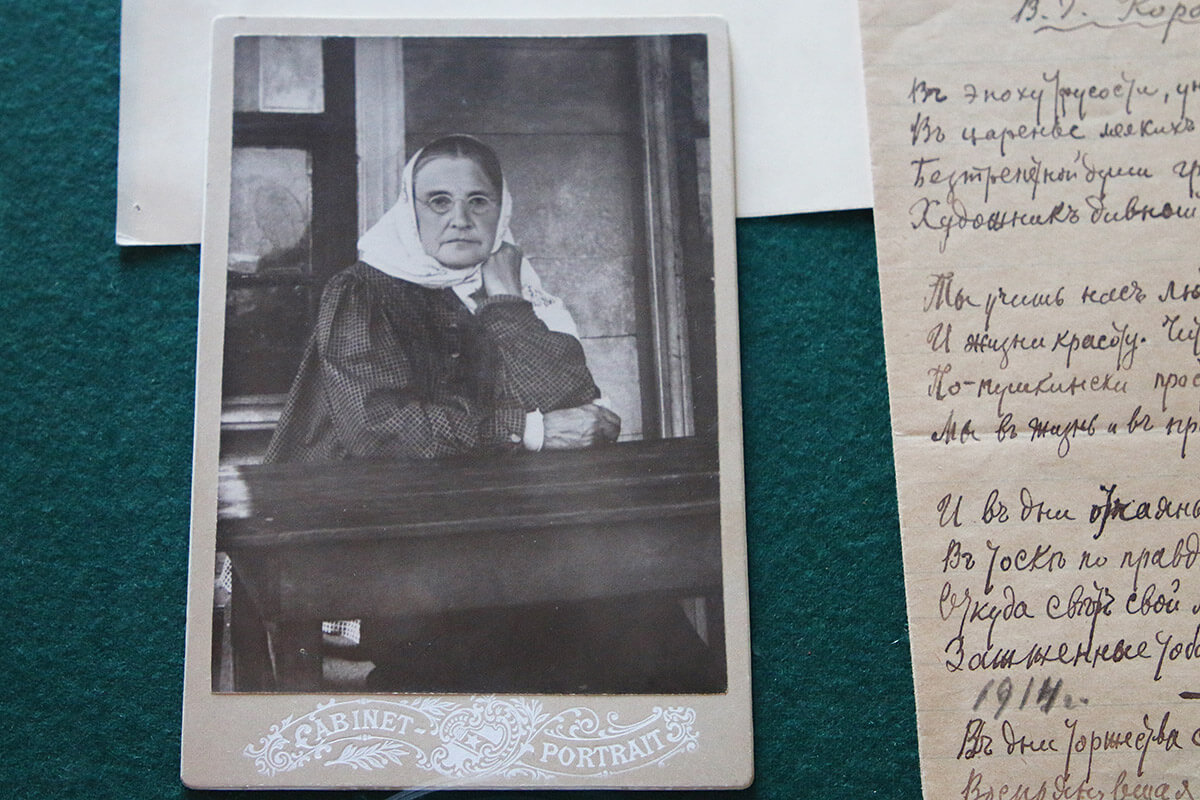 CABINET-
PORTRAIT
В. Г. Коро
Въ эпоху трусости, ун
Въ царенье мелкихъ
Безтрепетной души гр
Художникъ дивной
Ты учишь насъ лю
И жизни красоту. Чу
По-пушкински прос
Мы въ жизнь и въ пр
И въ дни отчаянья
Въ тоскѣ по правд
Откуда свѣтъ свой
Зажженные тоб
1914 г.
Въ дни торжества с